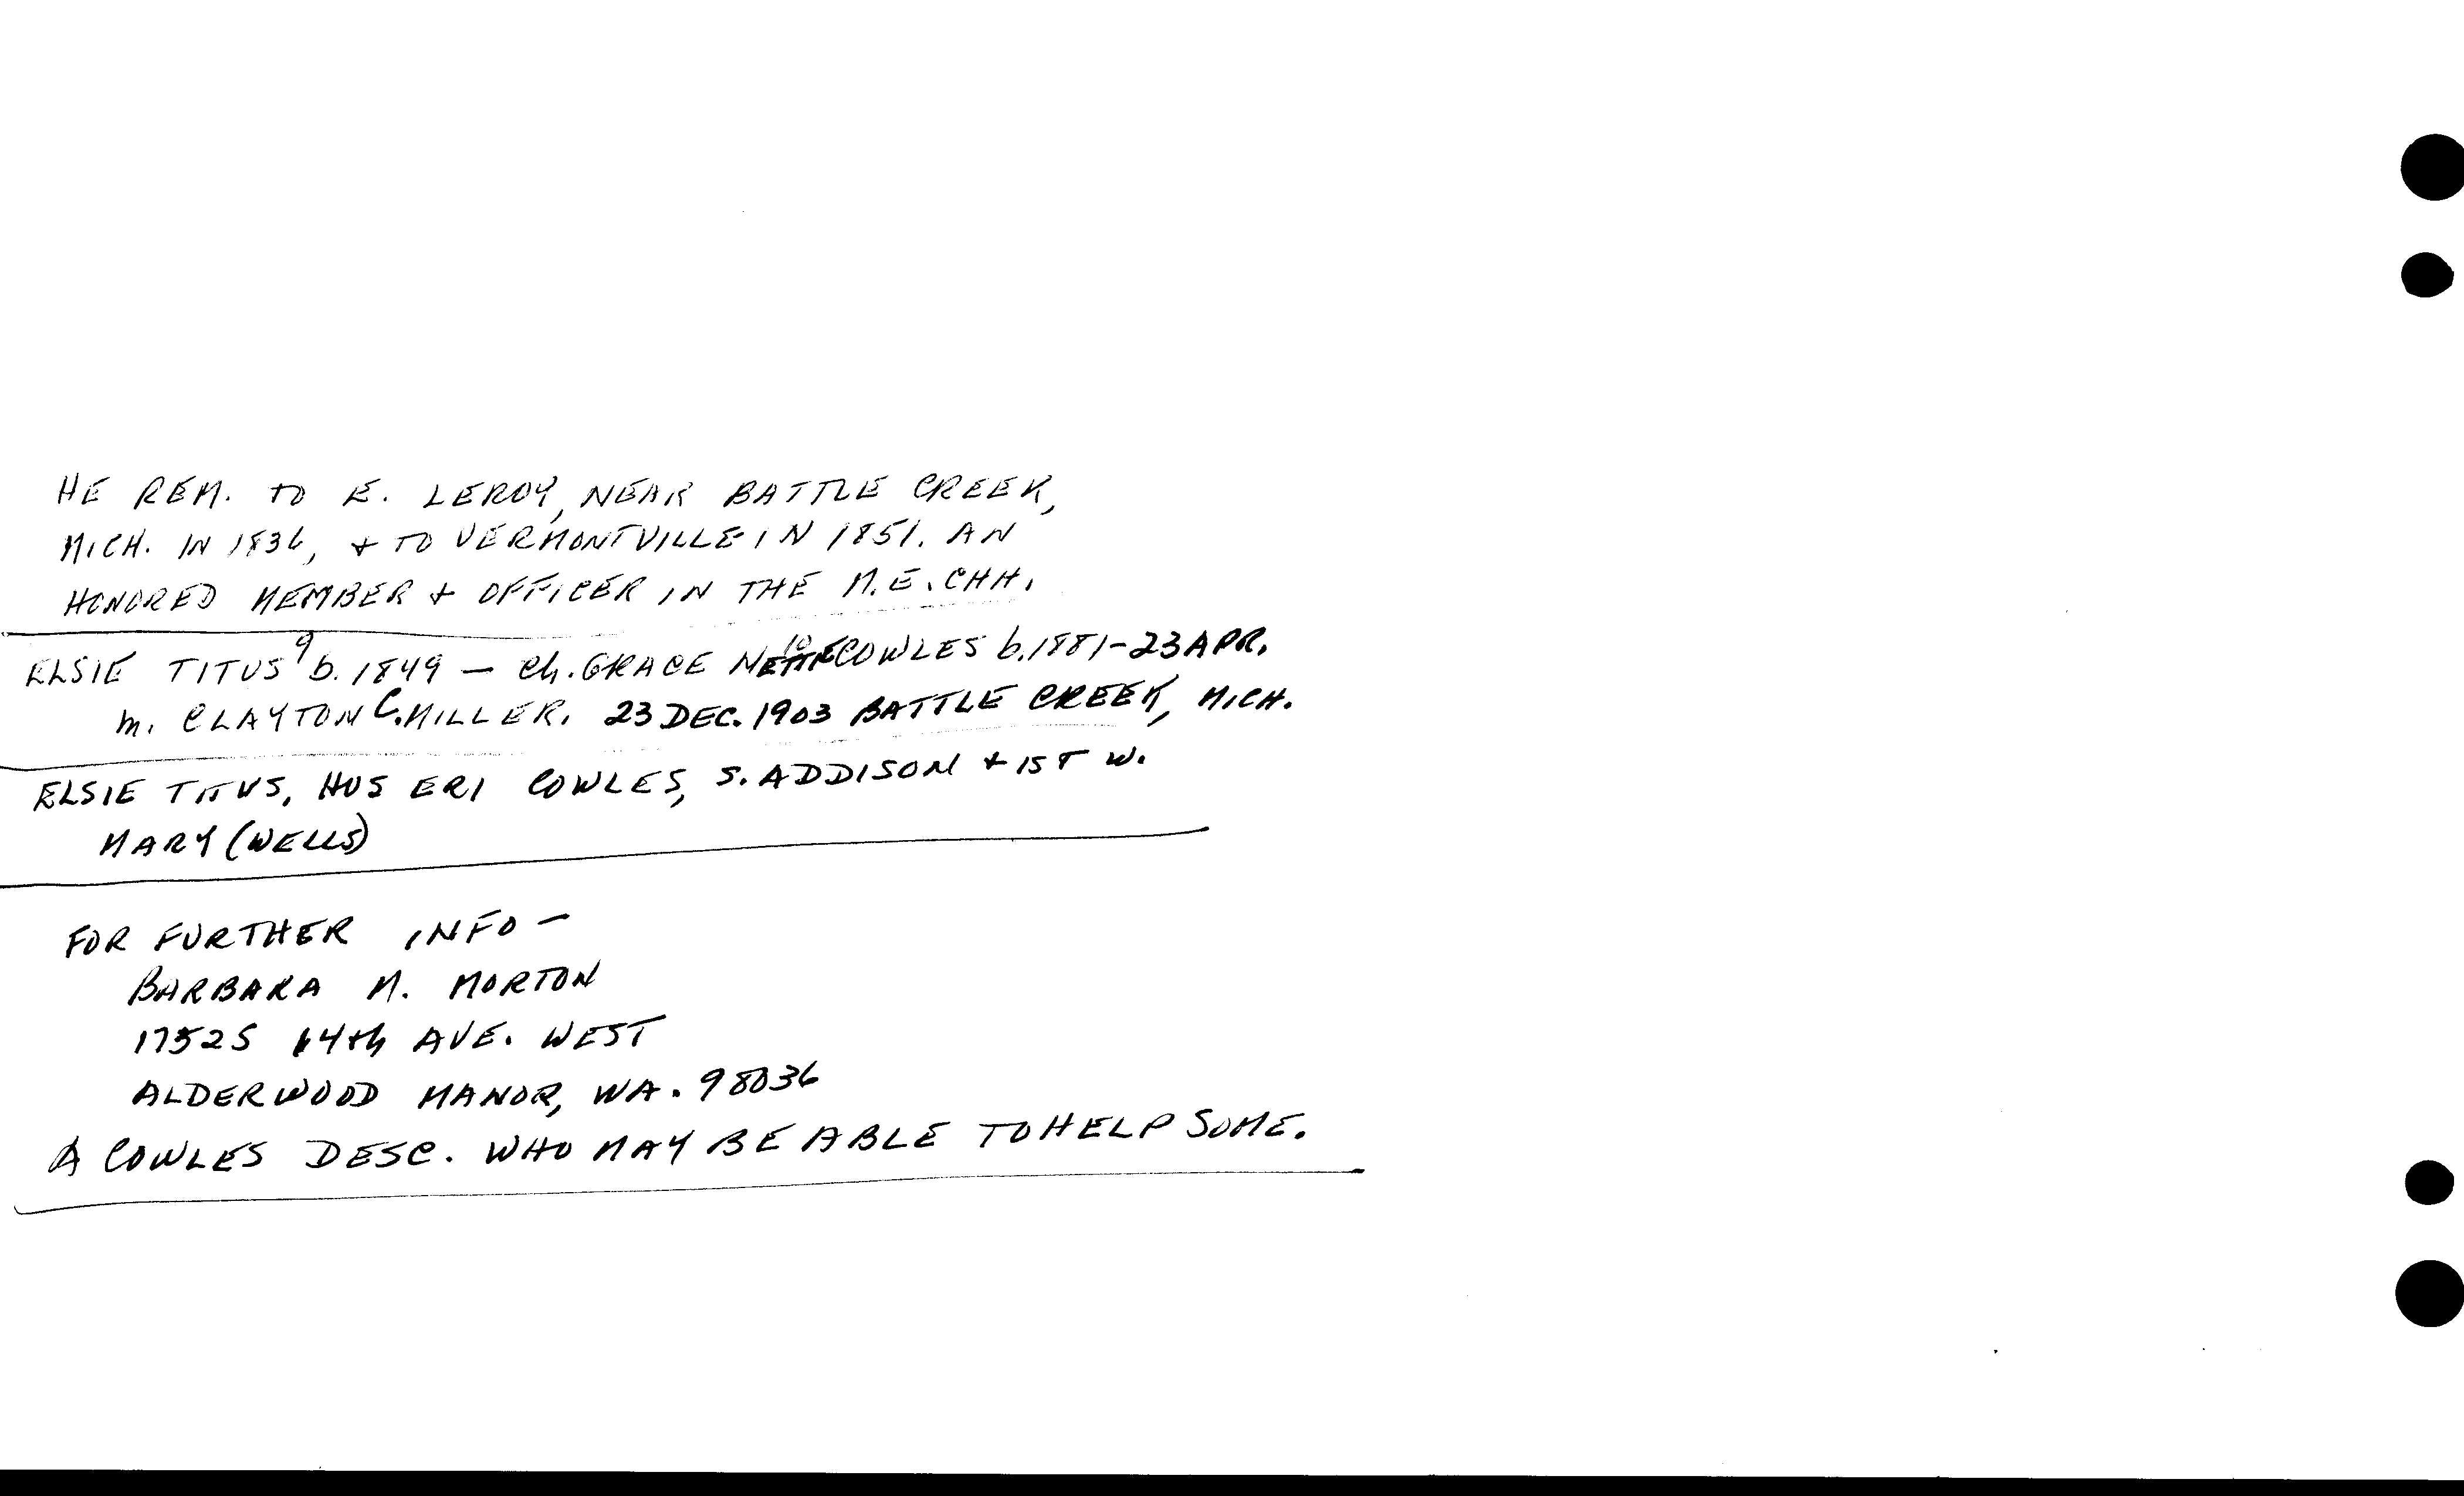 HE REM. TO E. LEROY, NEAR BATTLE CREEK,
MICH. IN 1836, + TO VERMONTVILLE IN 1851. AN
HONORED MEMBER + OFFICER IN THE M.E. CHH.
ELSIE TITUS⁹ b. 1849 — Ch. GRACE NETTIE¹⁰ COWLES b. 1881-23 APR.
m. CLAYTON C. MILLER. 23 DEC. 1903 BATTLE CREEK, MICH.
ELSIE TITUS, HUS ERI COWLES, S. ADDISON + 1ST W.
MARY (WELLS)
FOR FURTHER INFO —
BARBARA M. MORTON
17525 14th AVE. WEST
ALDERWOOD MANOR, WA. 98036
A COWLES DESC. WHO MAY BE ABLE TO HELP SOME.